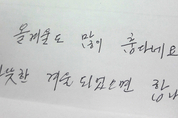 올겨울도 많이 춥다네요
뜻한 겨울 되셨으면